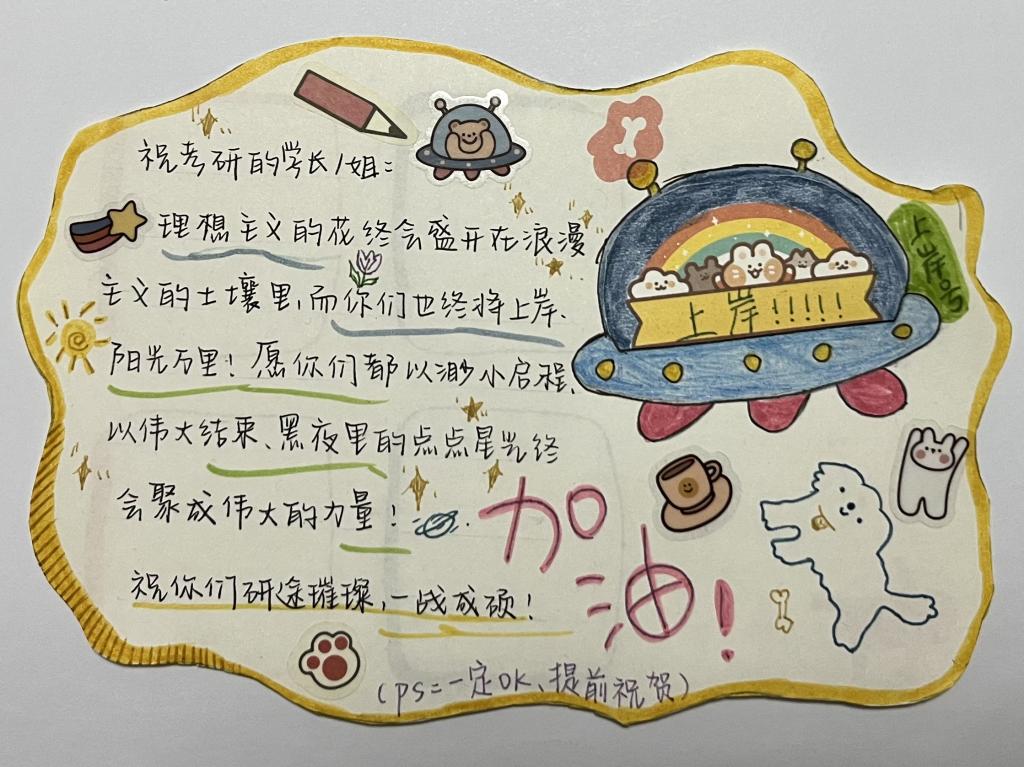 祝考研的学长/姐:
理想主义的花终会盛开在浪漫
主义的土壤里,而你们也终将上岸、
阳光万里!愿你们都以渺小启程、
以伟大结束、黑夜里的点点星光终
会聚成伟大的力量!
祝你们研途璀璨,一战成硕!
(ps:一定OK、提前祝贺)
加油!
上岸!!!!!
上岸号